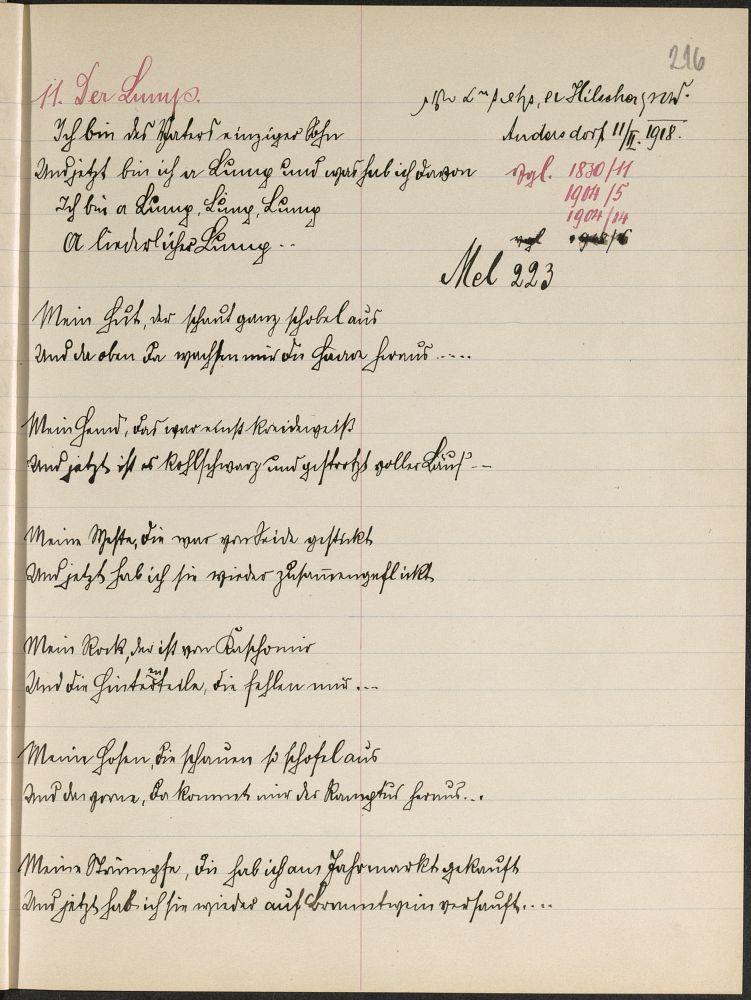 216
11. Der Lump.
Hilscher
Andersdorf 11/II. 1918.
Ich bin des Vaters einziger Sohn
Und jetzt bin ich a Lump und was hab ich davon
Ich bin a Lump, Lump, Lump
A liederlicher Lump...
vgl. 1830/11
1904/5
1904/14
vgl
Mel 223
Mein Hut, der schaut ganz schobel aus
Und da oben da wachsen mir die Haare heraus.....
Mein Hemd, das war einst kreideweiß
Und jetzt ist es kohlschwarz und gestrotzt voller Läus'...
Meine Weste, die war von Seide gestickt
Und jetzt hab ich sie wieder zusammengeflickt
Mein Rock, der ist von Kaschomir
Und die Hinterteile, die fehlen mir...
Meine Hosen, die schauen so schofel aus
Und da vorne, da kommet mir der heraus...
Meine Strümpfe, die hab ich am Jahrmarkt gekauft
Und jetzt hab ich sie wieder auf Branntwein versauft....